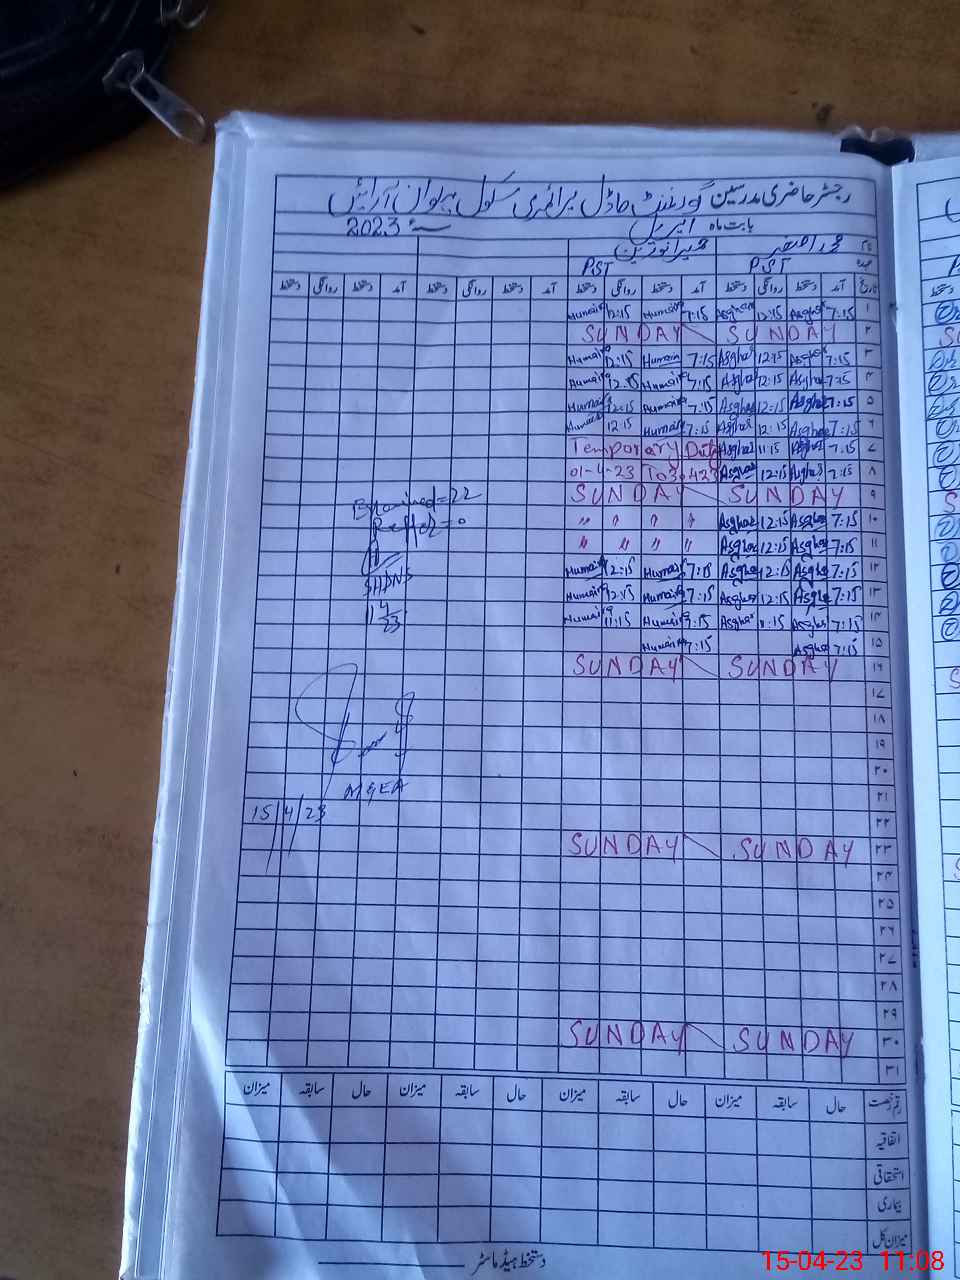 رجسٹر حاضری مدرسین گورنمنٹ ماڈل پرائمری سکول پہلوان آرائیں
بابت ماہ اپریل سنہ 2023
نام محمد اصغر حمیرا نورین
عہدہ PST PST
تاریخ آمد دستخط روانگی دستخط آمد دستخط روانگی دستخط آمد دستخط روانگی دستخط آمد دستخط روانگی دستخط
۱ 7:15 Asghar 12:15 Asghar 7:15 Humaira 12:15 Humaira
۲ SUNDAY SUNDAY
۳ 7:15 Asghar 12:15 Asghar 7:15 Humaira 12:15 Humaira
۴ 7:15 Asghar 12:15 Asghar 7:15 Humaira 12:15 Humaira
۵ 7:15 Asghar 12:15 Asghar 7:15 Humaira 12:15 Humaira
۶ 7:15 Asghar 12:15 Asghar 7:15 Humaira 12:15 Humaira
۷ 7:15 Asghar 11:15 Asghar Temporary Duty
۸ 7:15 Asghar 12:15 Asghar 01-4-23 To
۹ SUNDAY SUNDAY
۱۰ 7:15 Asghar 12:15 Asghar " " " "
۱۱ 7:15 Asghar 12:15 Asghar " " " "
۱۲ 7:15 Asghar 12:15 Asghar 7:15 Humaira 12:15 Humaira
۱۳ 7:15 Asghar 12:15 Asghar 7:15 Humaira 12:15 Humaira
۱۴ 7:15 Asghar 11:15 Asghar 7:15 Humaira 11:15 Humaira
۱۵ 7:15 Asghar 7:15 Humaira
۱۶ SUNDAY SUNDAY
۱۷
۱۸
۱۹
۲۰
۲۱
۲۲
۲۳ SUNDAY SUNDAY
۲۴
۲۵
۲۶
۲۷
۲۸
۲۹
۳۰ SUNDAY SUNDAY
۳۱
Examined = 22
SHDNS
15/4/23
رقم رخصت حال سابقہ میزان حال سابقہ میزان حال سابقہ میزان حال سابقہ میزان
اتفاقیہ
استحقاقی
بیماری
میزان کل
دستخط ہیڈ ماسٹر
15-04-23 11:08